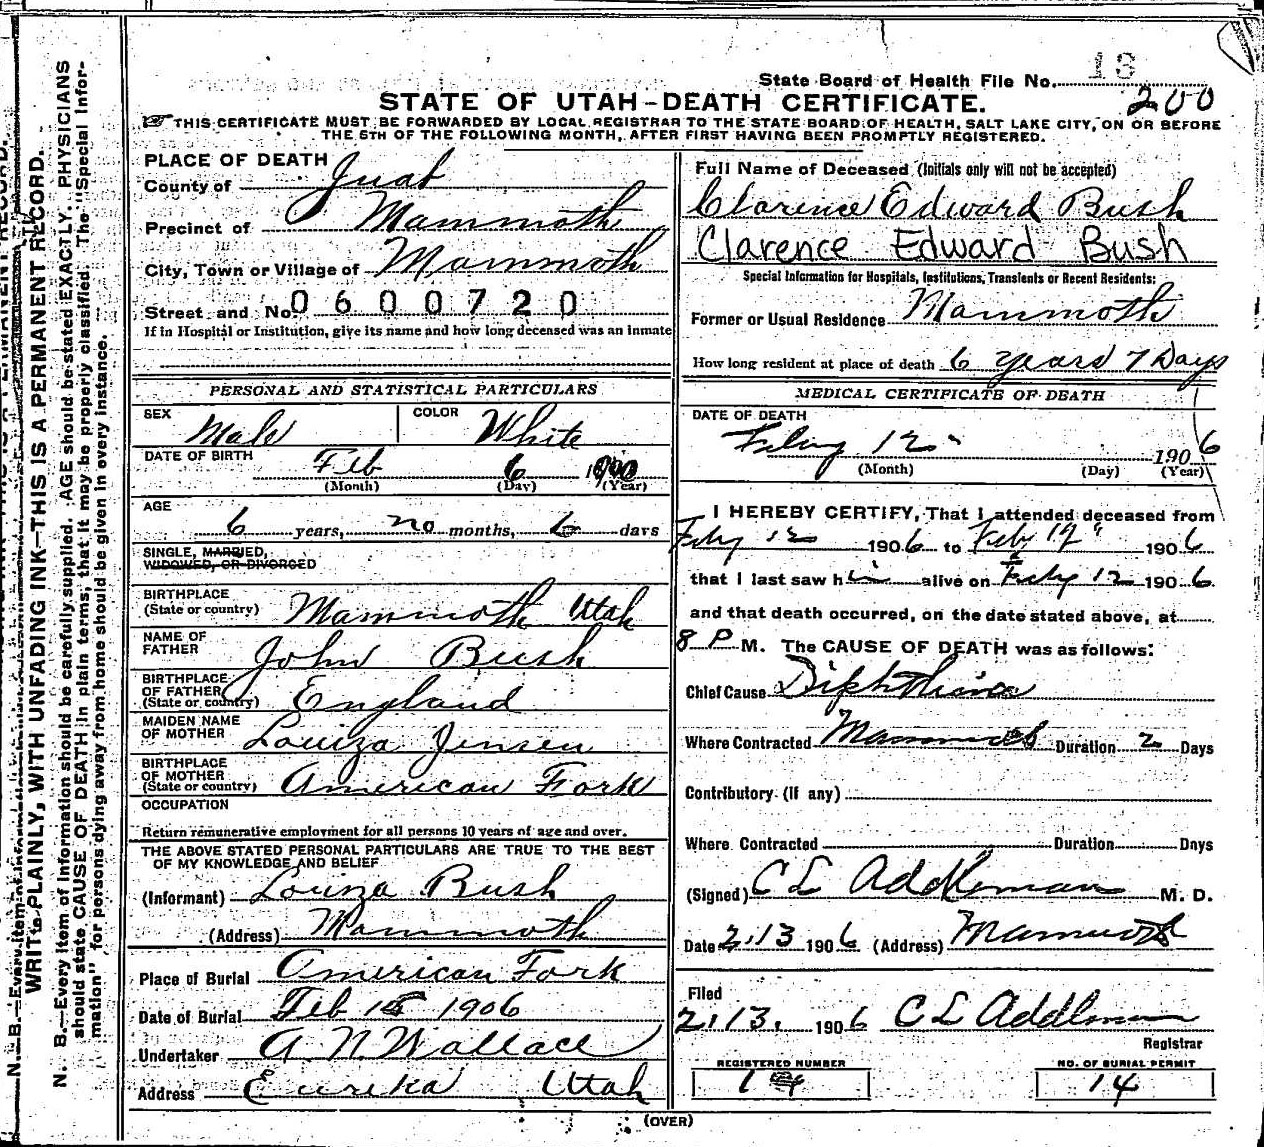 State Board of Health File No. 18
200
STATE OF UTAH-DEATH CERTIFICATE.
THIS CERTIFICATE MUST BE FORWARDED BY LOCAL REGISTRAR TO THE STATE BOARD OF HEALTH, SALT LAKE CITY, ON OR BEFORE
THE 5TH OF THE FOLLOWING MONTH, AFTER FIRST HAVING BEEN PROMPTLY REGISTERED.
PLACE OF DEATH
County of Juab
Precinct of Mammoth
City, Town or Village of Mammoth
Street and No. 0600720
If in Hospital or Institution, give its name and how long deceased was an inmate
PERSONAL AND STATISTICAL PARTICULARS
SEX Male COLOR White
DATE OF BIRTH Feb 6 1900
(Month) (Day) (Year)
AGE
6 years, no months, 6 days
SINGLE, MARRIED,
WIDOWED, OR DIVORCED
BIRTHPLACE
(State or country) Mammoth Utah
NAME OF
FATHER John Bush
BIRTHPLACE
OF FATHER
(State or country) England
MAIDEN NAME
OF MOTHER Louiza Jensen
BIRTHPLACE
OF MOTHER
(State or country) American Fork
OCCUPATION
Return remunerative employment for all persons 10 years of age and over.
THE ABOVE STATED PERSONAL PARTICULARS ARE TRUE TO THE BEST
OF MY KNOWLEDGE AND BELIEF
(Informant) Louiza Bush
(Address) Mammoth
Place of Burial American Fork
Date of Burial Feb 1906
Undertaker A. N. Wallace
Address Eureka Utah
Full Name of Deceased (Initials only will not be accepted)
Clarence Edward Bush
Clarence Edward Bush
Special Information for Hospitals, Institutions, Transients or Recent Residents:
Former or Usual Residence Mammoth
How long resident at place of death 6 years 7 Days
MEDICAL CERTIFICATE OF DEATH
DATE OF DEATH
Feby 12 1906
(Month) (Day) (Year)
I HEREBY CERTIFY, That I attended deceased from
Feby 12 1906 to Feby 12 1906
that I last saw him alive on Feby 12 1906
and that death occurred, on the date stated above, at
8 P M. The CAUSE OF DEATH was as follows:
Chief Cause Diphtheria
Where Contracted Mammoth Duration 2 Days
Contributory (if any)
Where Contracted Duration Days
(Signed) C L Addleman M. D.
Date 2/13 1906 (Address) Mammoth
Filed
2/13, 1906 C L Addleman
Registrar
REGISTERED NUMBER
NO. OF BURIAL PERMIT
14
(OVER)
WRITE PLAINLY, WITH UNFADING INK—THIS IS A PERMANENT RECORD.
N. B.—Every item of information should be carefully supplied. AGE should be stated EXACTLY. PHYSICIANS
should state CAUSE OF DEATH in plain terms, that it may be properly classified. The "Special Infor-
mation" for persons dying away from home should be given in every instance.